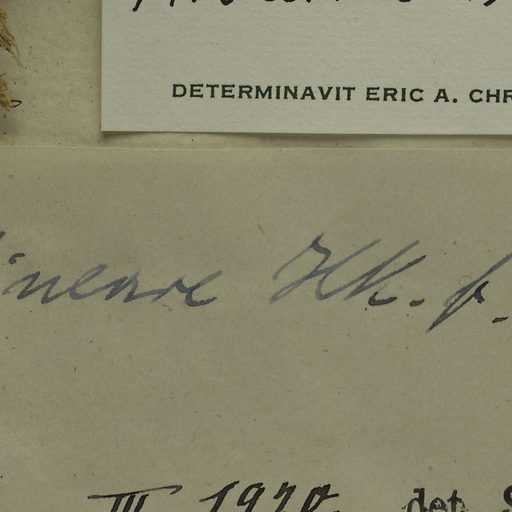 DETERMINAVIT ERIC A. CHR
ineare Hk. f.
III 1970. det S